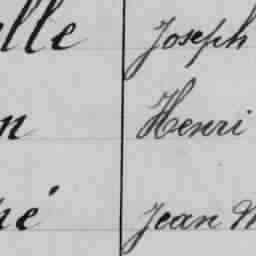 lle Joseph
n Henri
hé Jean M